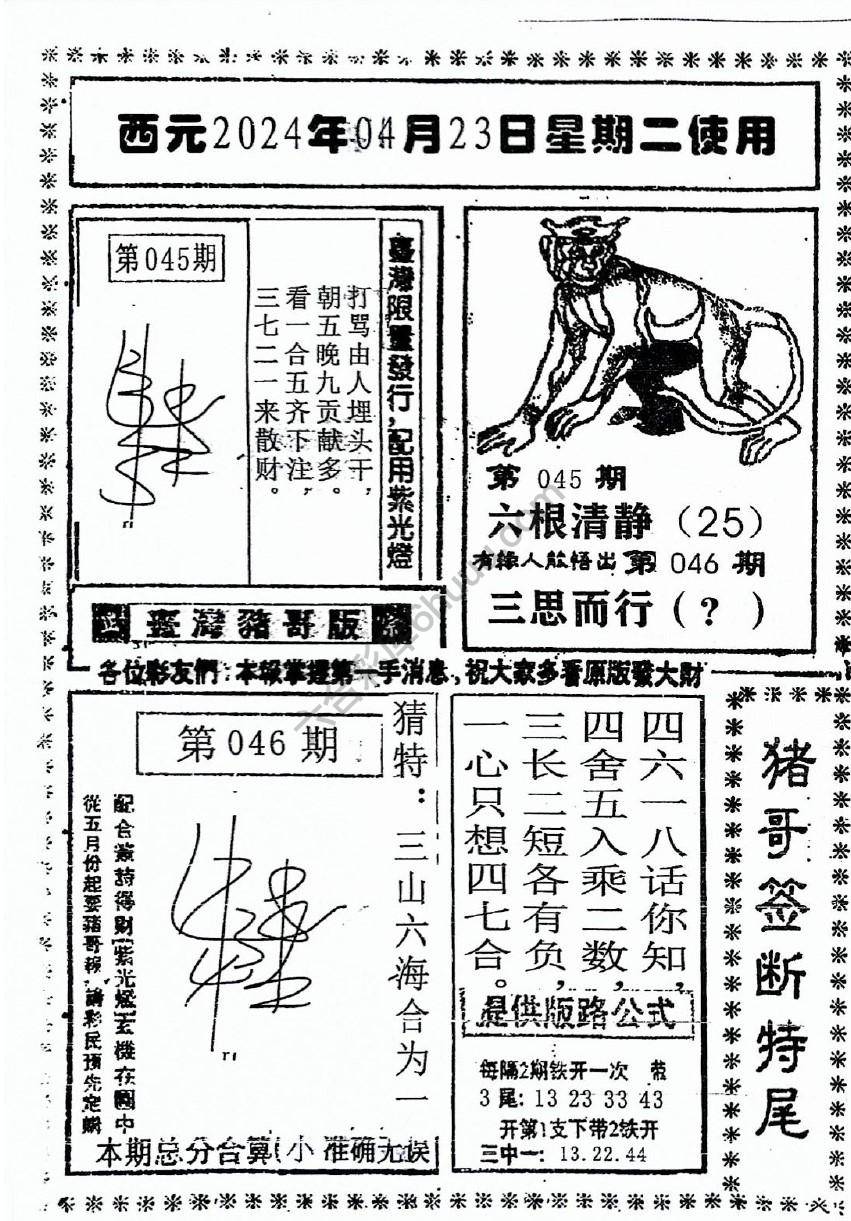 西元2024年04月23日星期二使用
第045期
打骂由人埋头干,
朝五晚九贡献多。
看一合五齐下注,
三七二一来散财。
臺灣限量發行,配用紫光燈
臺灣豬哥版
第 045 期
六根清静(25)
有缘人能悟出第 046 期
三思而行(?)
各位彩友們:本報掌握第一手消息,祝大家多看原版發大財
第046期
猜特:三山六海合为一
配合蔡詩得財 紫光燈玄機在圖中
從五月份起要豬哥報,請彩民預先定購
本期总分合算(小 准确无误
四六一八话你知,
四舍五入乘二数,
三长二短各有负,
一心只想四七合。
提供版路公式
每隔2期铁开一次 带
3尾:13 23 33 43
开第1支下带2铁开
三中一:13.22.44
猪哥签断特尾